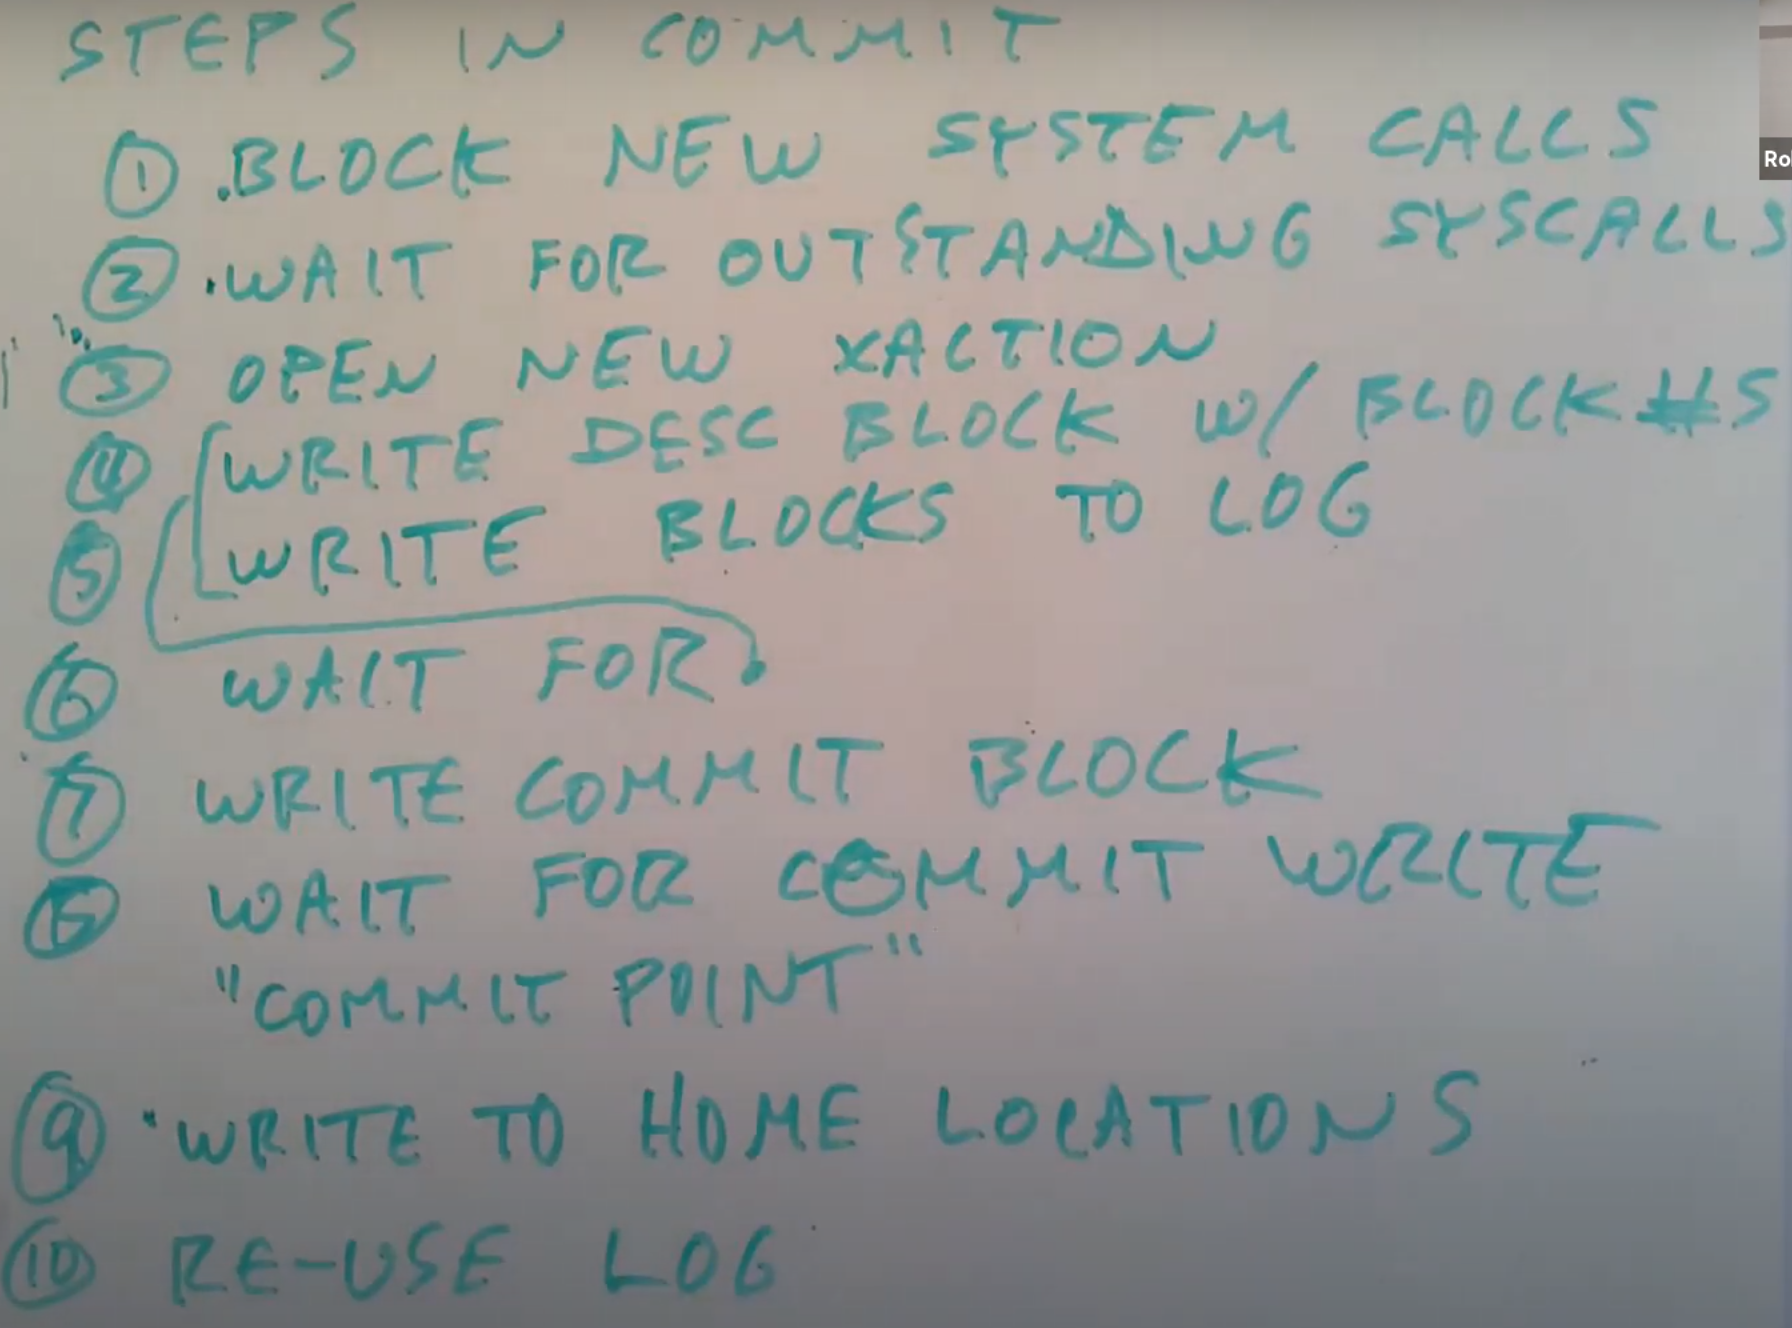 STEPS IN COMMIT
① BLOCK NEW SYSTEM CALLS
② WAIT FOR OUTSTANDING SYSCALLS
③ OPEN NEW XACTION
④ WRITE DESC BLOCK W/ BLOCK #S
⑤ WRITE BLOCKS TO LOG
⑥ WAIT FOR
⑦ WRITE COMMIT BLOCK
⑧ WAIT FOR COMMIT WRITE
"COMMIT POINT"
⑨ WRITE TO HOME LOCATIONS
⑩ RE-USE LOG